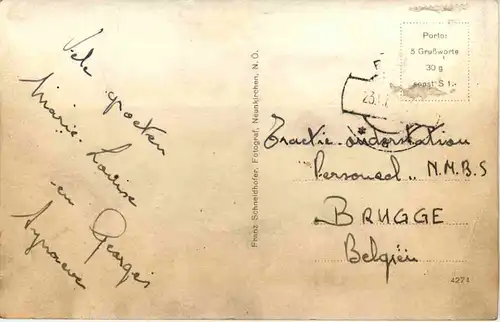 Vele groeten
Marie-Louise
en Georges
Franz Schneidhofer, Fotograf, Neunkirchen, N. Ö.
Porto:
5 Grußworte
30 g
sonst S 1.-
Tractie-onderstation
"Personeel" N.M.B.S
BRUGGE
Belgïen
4271